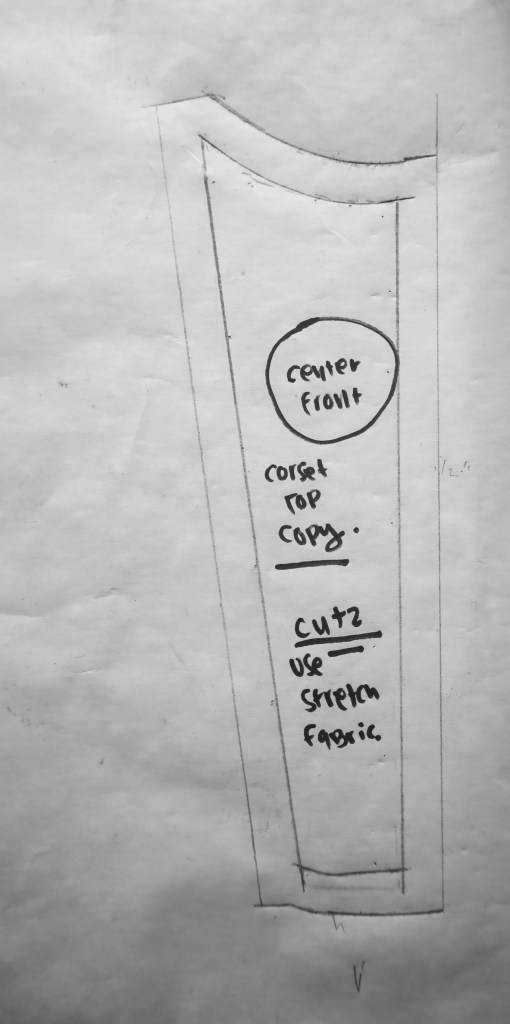 center
front
corset
TOP
copy.
1/2"
cut2
use
stretch
fabric.